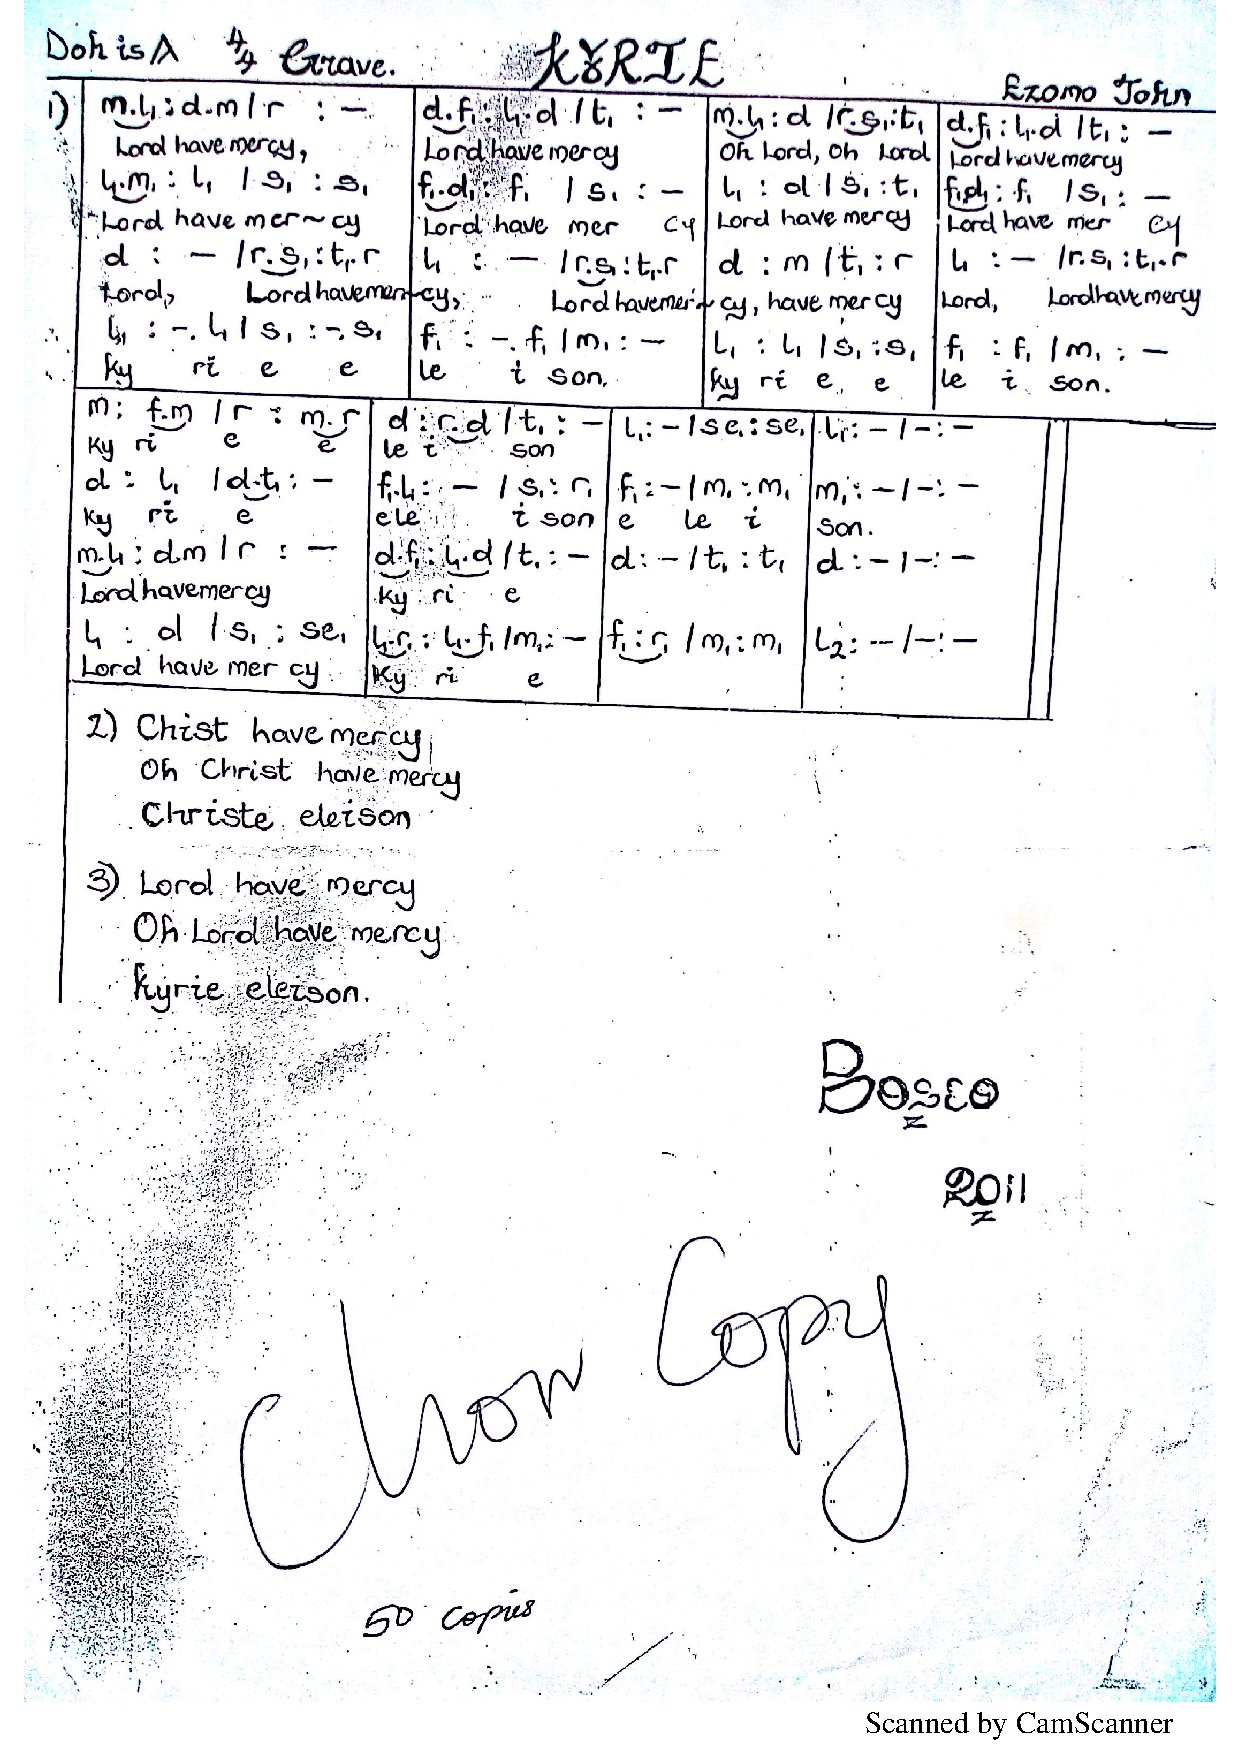 Doh is A 4/4 Grave. KYRIE
Ezomo John
1) m.l₁ : d.m / r : – | d.f₁ : l₁.d / t₁ : – | m.l₁ : d / r.s₁ : t₁ | d.f₁ : l₁.d / t₁ : –
Lord have mercy, | Lord have mercy | Oh Lord, Oh Lord | Lord have mercy
l₁.m₁ : l₁ / s₁ : s₁ | f₁.d₁ : f₁ / s₁ : – | l₁ : d / s₁ : t₁ | f₁.d₁ : f₁ / s₁ : –
Lord have mer~cy | Lord have mer cy | Lord have mercy | Lord have mer cy
d : – / r.s₁ : t₁.r | l₁ : – / r.s₁ : t₁.r | d : m / t₁ : r | l₁ : – / r.s₁ : t₁.r
Lord, Lord have mer-cy, Lord have mer-cy, have mercy | Lord, Lord have mercy
l₁ : –.l₁ / s₁ : –.s₁ | f₁ : –.f₁ / m₁ : – | l₁ : l₁ / s₁ : s₁ | f₁ : f₁ / m₁ : –
Ky ri e e | le i son. | Ky ri e, e | le i son.
m : f.m / r : m.r | d : r.d / t₁ : – | l₁ : – / se₁ : se₁ | l₁ : – / – : –
Ky ri e e | le i son
d : l₁ / d.t₁ : – | f₁.l₁ : – / s₁ : r₁ | f₁ : – / m₁ : m₁ | m₁ : – / – : –
Ky ri e | ele i son | e le i | son.
m.l₁ : d.m / r : – | d.f₁ : l₁.d / t₁ : – | d : – / t₁ : t₁ | d : – / – : –
Lord have mercy | Ky ri e
l₁ : d / s₁ : se₁ | l₁.r₁ : l₁.f₁ / m₁ : – | f₁ : r₁ / m₁ : m₁ | l₂ : – / – : –
Lord have mer cy | Ky ri e
2) Chist have mercy,
Oh Christ have mercy
Christe eleison
3) Lord have mercy
Oh Lord have mercy
Kyrie eleison.
Bosco
2011
Choir Copy
50 copies
Scanned by CamScanner